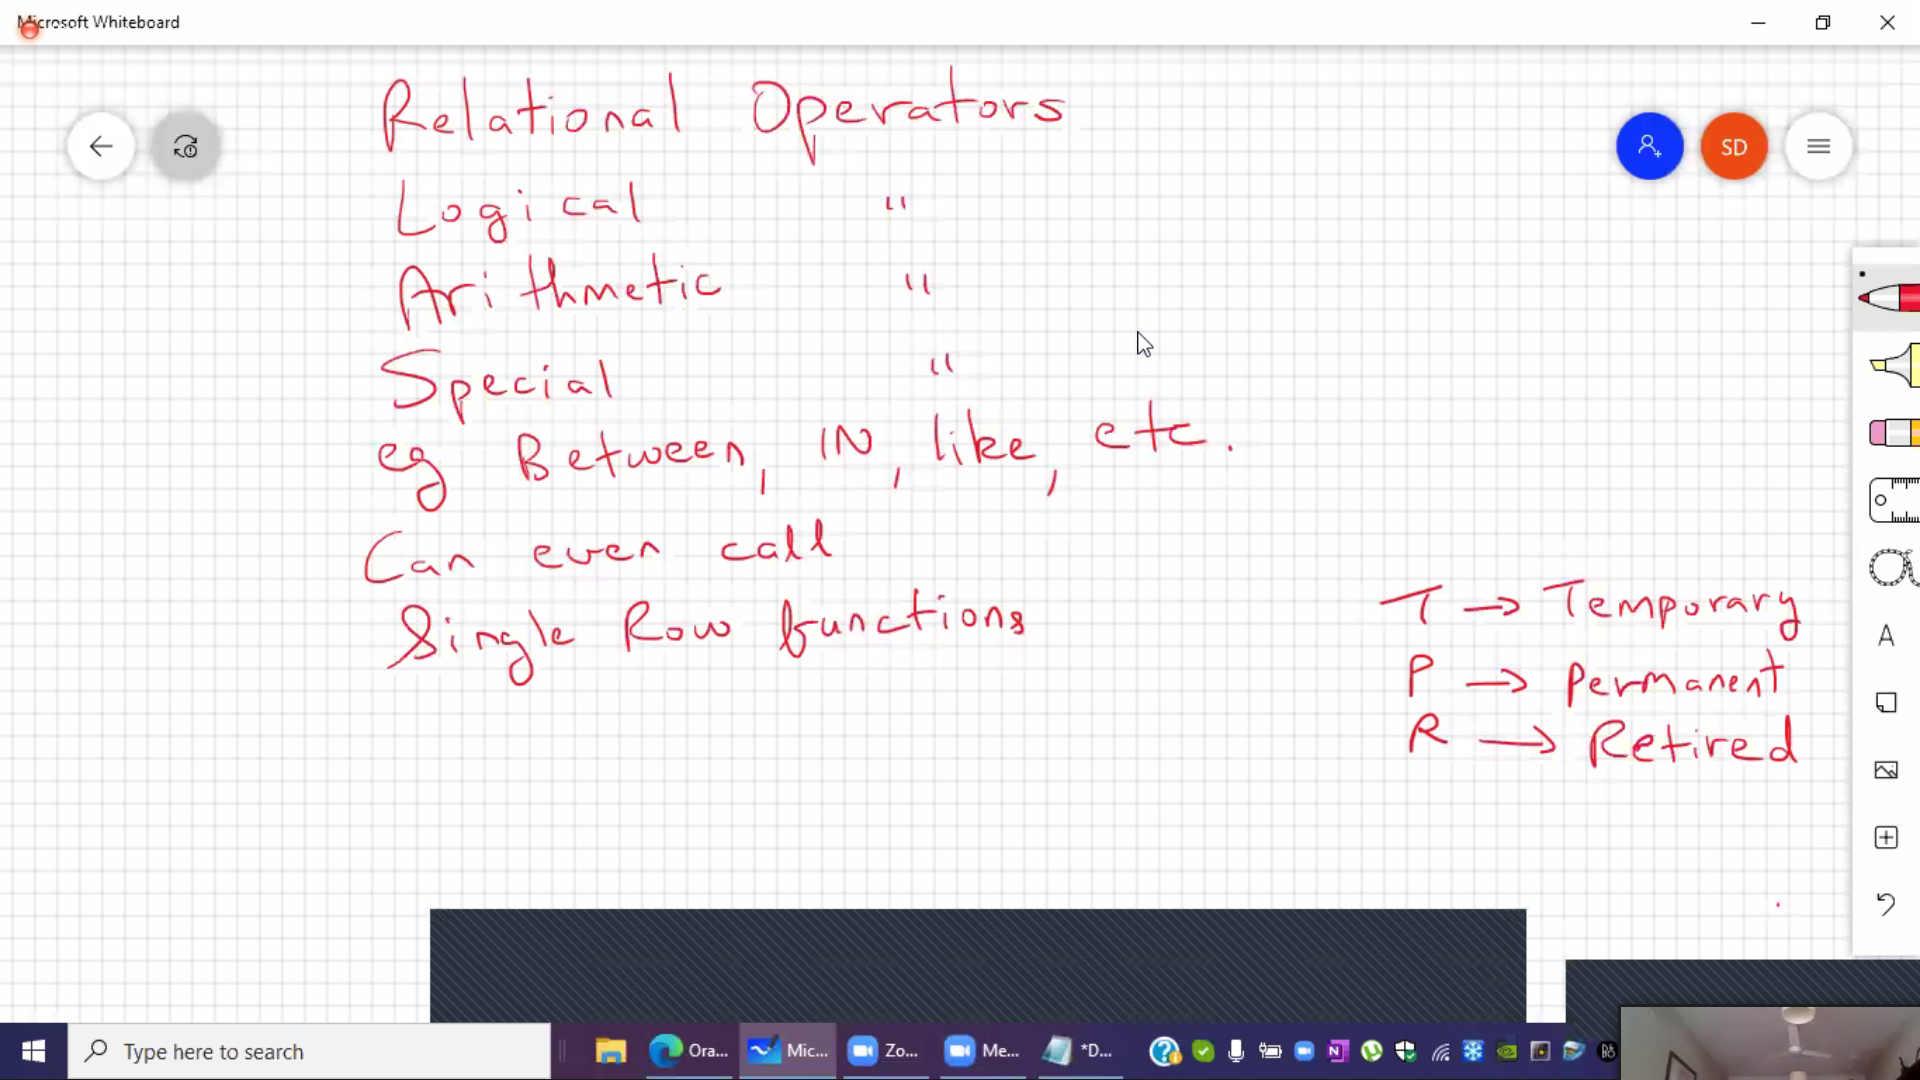 Microsoft Whiteboard
Relational Operators
SD
Logical "
Arithmetic "
Special "
eg Between, IN, like, etc.
Can even call
Single Row functions
T → Temporary
P → Permanent
R → Retired
A
Type here to search
Ora...
Mic...
Zo...
Me...
*D...